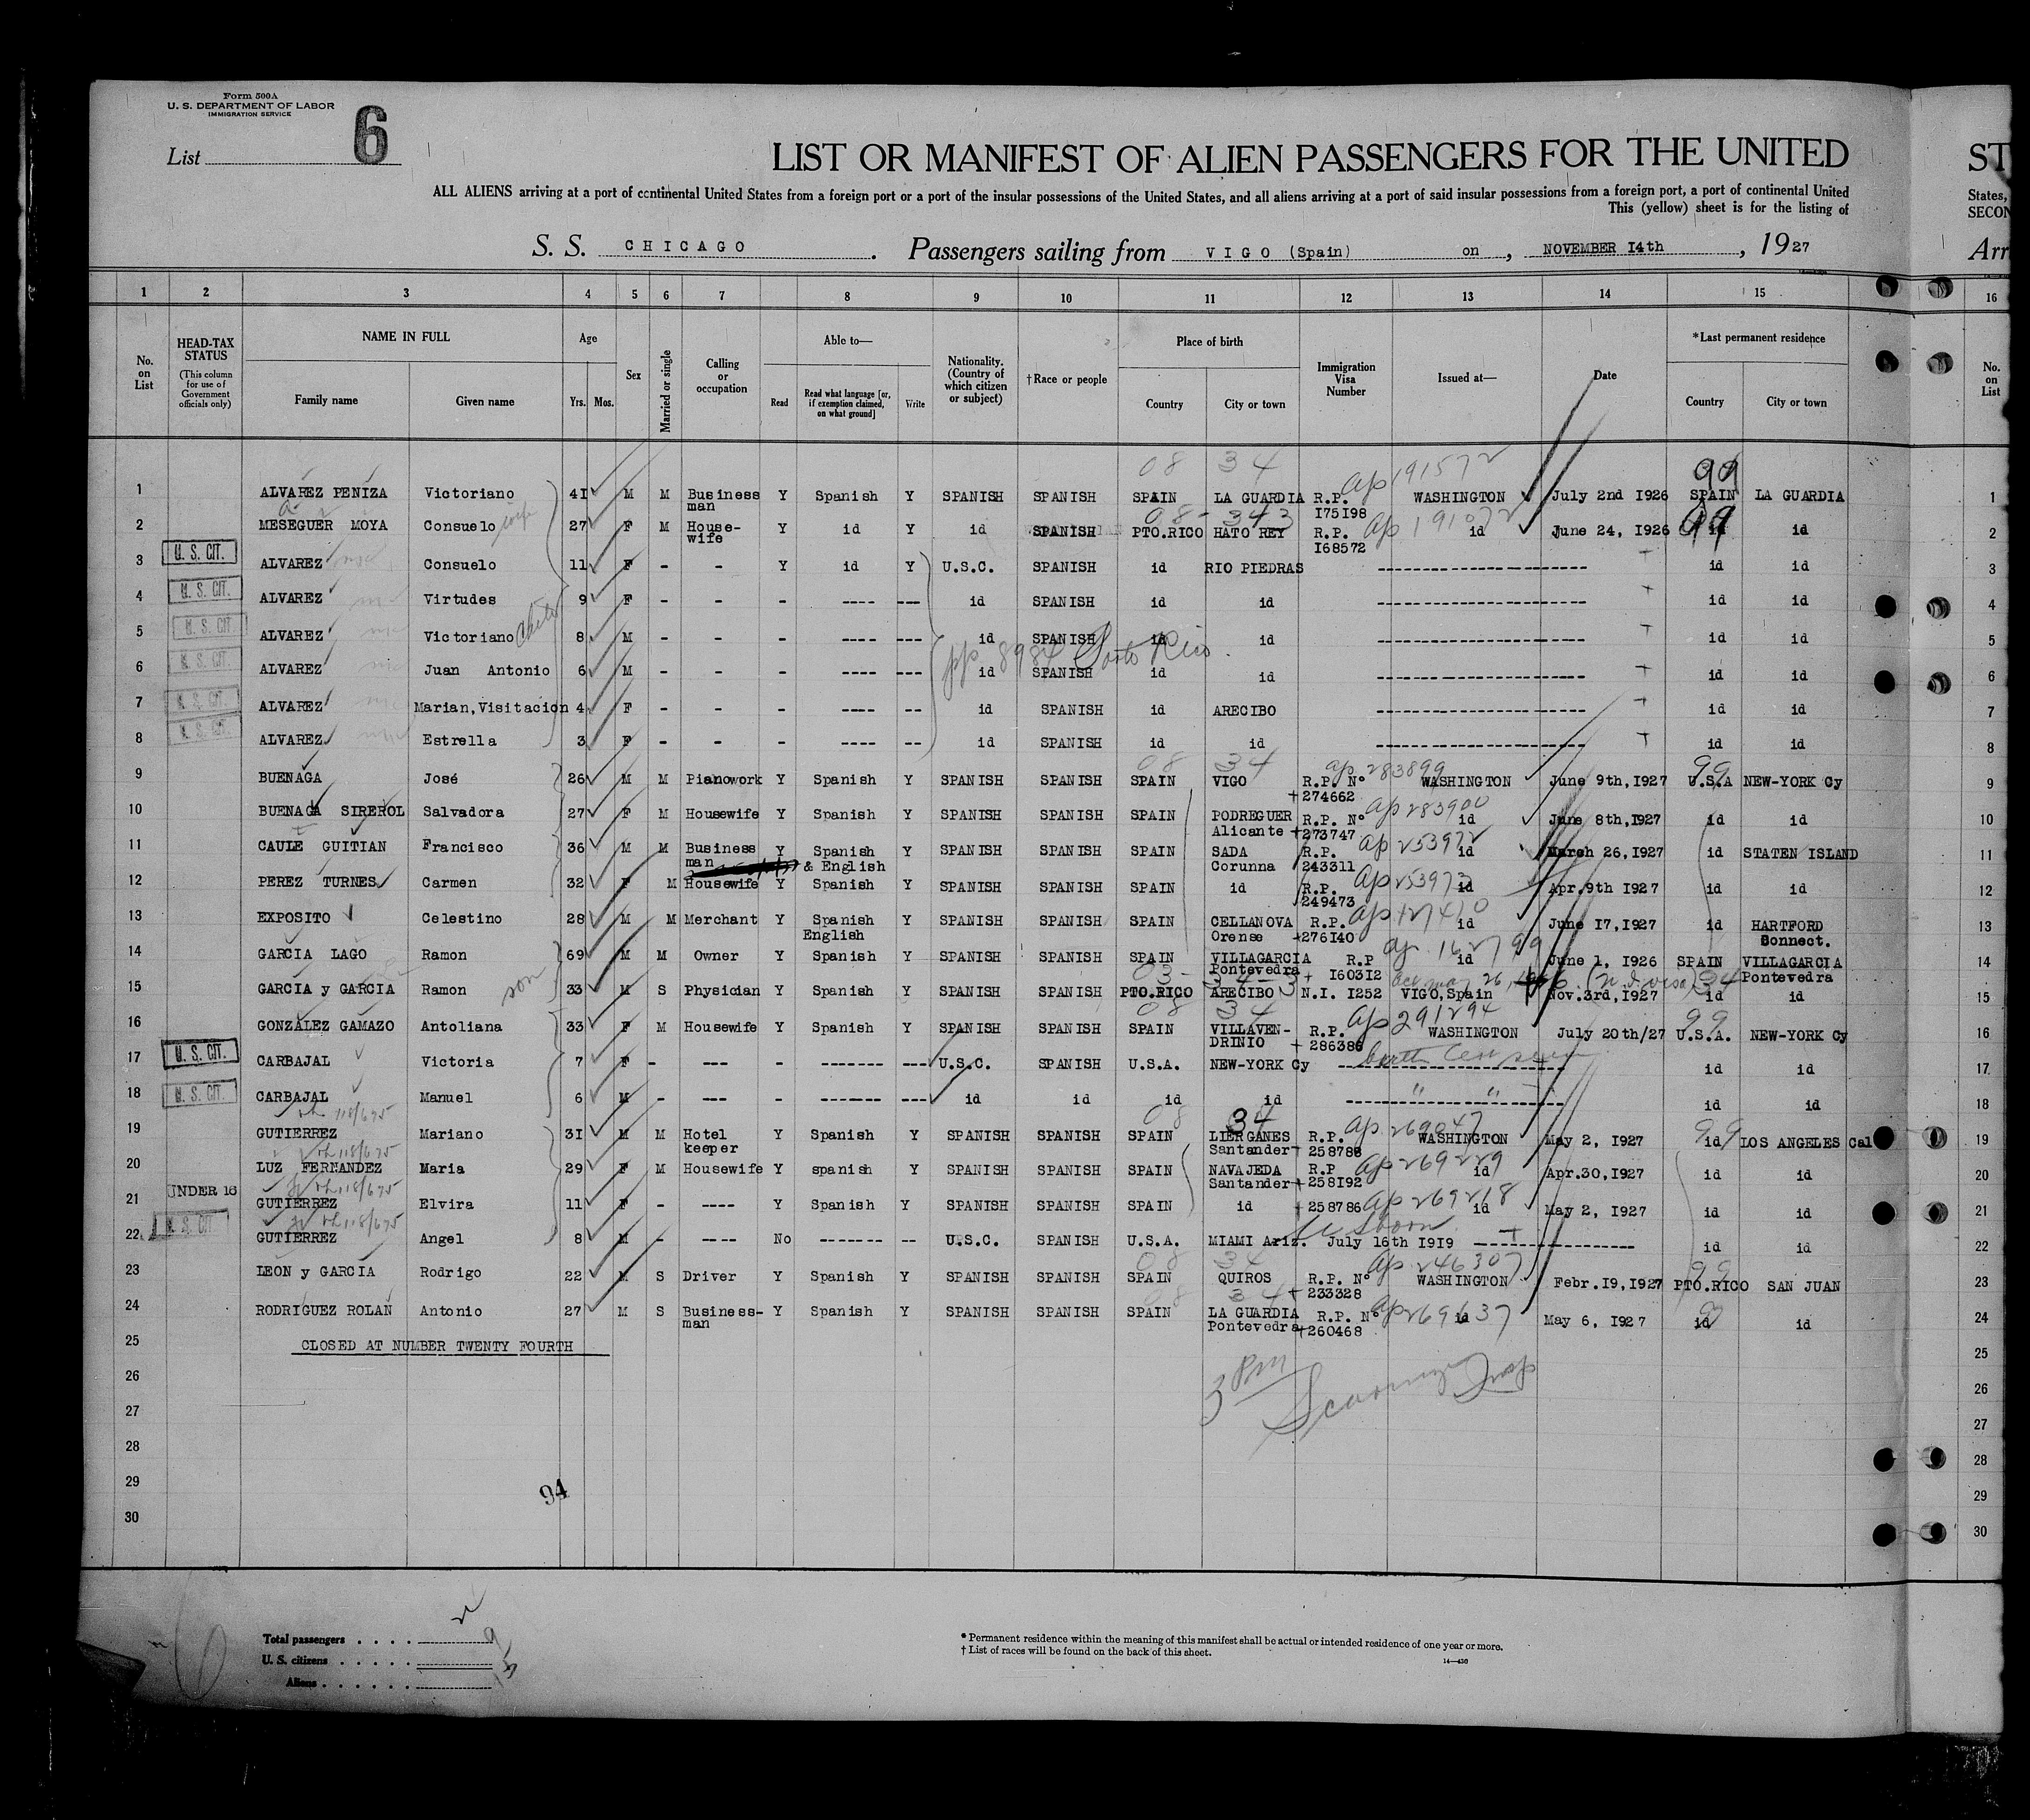 Form 500A
U. S. DEPARTMENT OF LABOR
IMMIGRATION SERVICE
List 6
LIST OR MANIFEST OF ALIEN PASSENGERS FOR THE UNITED
ST
ALL ALIENS arriving at a port of continental United States from a foreign port or a port of the insular possessions of the United States, and all aliens arriving at a port of said insular possessions from a foreign port, a port of continental United
States,
This (yellow) sheet is for the listing of
SECON
S. S. CHICAGO. Passengers sailing from VIGO (Spain) on, NOVEMBER 14th, 1927
Arr
1 2 3 4 5 6 7 8 9 10 11 12 13 14 15 16
No. on List
HEAD-TAX STATUS (This column for use of Government officials only)
NAME IN FULL Family name Given name
Age Yrs. Mos.
Sex
Married or single
Calling or occupation
Able to— Read Read what language [or, if exemption claimed, on what ground] Write
Nationality. (Country of which citizen or subject)
†Race or people
Place of birth Country City or town
Immigration Visa Number
Issued at—
Date
*Last permanent residence Country City or town
No. on List
08 34 ap 191572 99
1 ALVAREZ PENIZA Victoriano 41 M M Business man Y Spanish Y SPANISH SPANISH SPAIN LA GUARDIA R.P. 175198 WASHINGTON July 2nd 1926 SPAIN LA GUARDIA 1
2 MESEGUER MOYA Consuelo wife 27 F M House-wife Y id Y id SPANISH PTO.RICO HATO REY R.P. 168572 id June 24, 1926 id id 2
3 U. S. CIT. ALVAREZ Consuelo 11 F - - Y id Y U.S.C. SPANISH id RIO PIEDRAS ---- id id 3
4 U. S. CIT. ALVAREZ Virtudes 9 F - - - ---- --- id SPANISH id id ---- id id 4
5 U. S. CIT. ALVAREZ Victoriano 8 M - - - ---- --- id SPANISH id id ---- id id 5
pp 8984 Porto Rico
6 U. S. CIT. ALVAREZ Juan Antonio 6 M - - - ---- --- id SPANISH id id ---- id id 6
7 U. S. CIT. ALVAREZ Marian,Visitacion 4 F - - - ---- -- id SPANISH id ARECIBO ---- id id 7
8 U. S. CIT. ALVAREZ Estrella 3 F - - - ---- -- id SPANISH id id ---- id id 8
08 34 ap 283899 99
9 BUENAGA José 26 M M Pianowork Y Spanish Y SPANISH SPANISH SPAIN VIGO R.P. N° 274662 WASHINGTON June 9th,1927 U.S.A NEW-YORK Cy 9
ap 283900
10 BUENAGA SIREROL Salvadora 27 F M Housewife Y Spanish Y SPANISH SPANISH SPAIN PODREGUER Alicante R.P. N° 273747 id June 8th,1927 id id 10
ap 253972
11 CAULE GUITIAN Francisco 36 M M Business man Y Spanish & English Y SPANISH SPANISH SPAIN SADA Corunna R.P. 243311 id March 26,1927 id STATEN ISLAND 11
ap 253973
12 PEREZ TURNES Carmen 32 F M Housewife Y Spanish Y SPANISH SPANISH SPAIN id R.P. 249473 id Apr.9th 1927 id id 12
13 EXPOSITO Celestino 28 M M Merchant Y Spanish English Y SPANISH SPANISH SPAIN CELLANOVA Orense R.P. 276140 id June 17,1927 id HARTFORD Connect. 13
ap 162799
14 GARCIA LAGO Ramon 69 M M Owner Y Spanish Y SPANISH SPANISH SPAIN VILLAGARCIA Pontevedra R.P 160312 id June 1, 1926 SPAIN VILLAGARCIA Pontevedra 14
15 GARCIA y GARCIA Ramon son 33 M S Physician Y Spanish Y SPANISH SPANISH PTO.RICO ARECIBO N.I. 1252 VIGO,Spain Nov.3rd,1927 id id 15
08 34 ap 291294 99
16 GONZALEZ GAMAZO Antoliana 33 F M Housewife Y Spanish Y SPANISH SPANISH SPAIN VILLAVEN-DRINIO R.P. 286386 WASHINGTON July 20th/27 U.S.A. NEW-YORK Cy 16
17 U. S. CIT. CARBAJAL Victoria 7 F - --- - ------- --- U.S.C. SPANISH U.S.A. NEW-YORK Cy birth Cert seen id id 17
18 U. S. CIT. CARBAJAL Manuel 6 M - --- - ------- --- id id id id " " id id 18
118/675 08 34 ap 269047 99
19 GUTIERREZ Mariano 31 M M Hotel keeper Y Spanish Y SPANISH SPANISH SPAIN LIERGANES Santander R.P. 258786 WASHINGTON May 2, 1927 id LOS ANGELES Cal 19
118/675 ap 269229
20 LUZ FERNANDEZ Maria 29 F M Housewife Y spanish Y SPANISH SPANISH SPAIN NAVAJEDA Santander R.P 258192 id Apr.30,1927 id id 20
118/675 ap 269218
21 UNDER 16 GUTIERREZ Elvira 11 F - ---- Y Spanish Y SPANISH SPANISH SPAIN id 258786 id May 2, 1927 id id 21
118/675
22 U. S. CIT. GUTIERREZ Angel 8 M - ---- No ------- -- U.S.C. SPANISH U.S.A. MIAMI Ariz. July 16th 1919 ---- id id 22
08 34 ap 246307 99
23 LEON y GARCIA Rodrigo 22 M S Driver Y Spanish Y SPANISH SPANISH SPAIN QUIROS R.P. N° 233328 WASHINGTON Febr.19,1927 PTO.RICO SAN JUAN 23
08 34 ap 269637
24 RODRIGUEZ ROLAN Antonio 27 M S Business-man Y Spanish Y SPANISH SPANISH SPAIN LA GUARDIA Pontevedra R.P. N° 260468 id May 6, 1927 id id 24
25 CLOSED AT NUMBER TWENTY FOURTH 25
26 3 PM 26
27 27
28 28
29 94 29
30 30
Total passengers
U. S. citizens
Aliens
* Permanent residence within the meaning of this manifest shall be actual or intended residence of one year or more.
† List of races will be found on the back of this sheet.
14—436